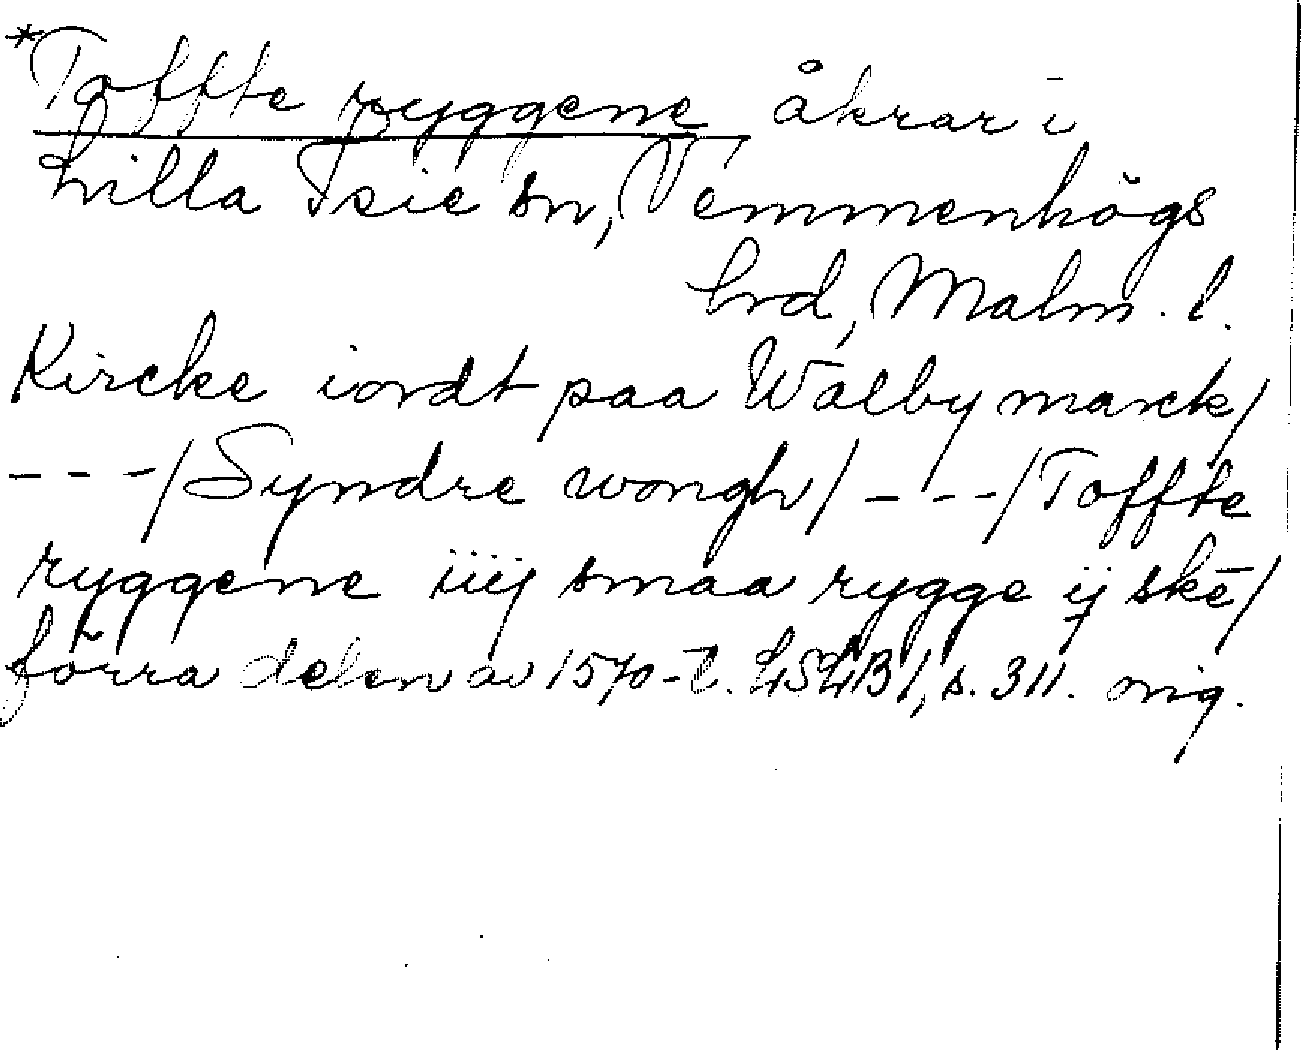 *Toffte ryggene åkrar i
Lilla Isie sn, Vemmenhögs
hrd, Malm. l.
Kircke iordt paa Walby marck/
---/Syndre wongh/---/Toffte
ryggene iiij smaa rygge ij skē/
förra delen av 1570-t. LSLB1, s. 311. orig.